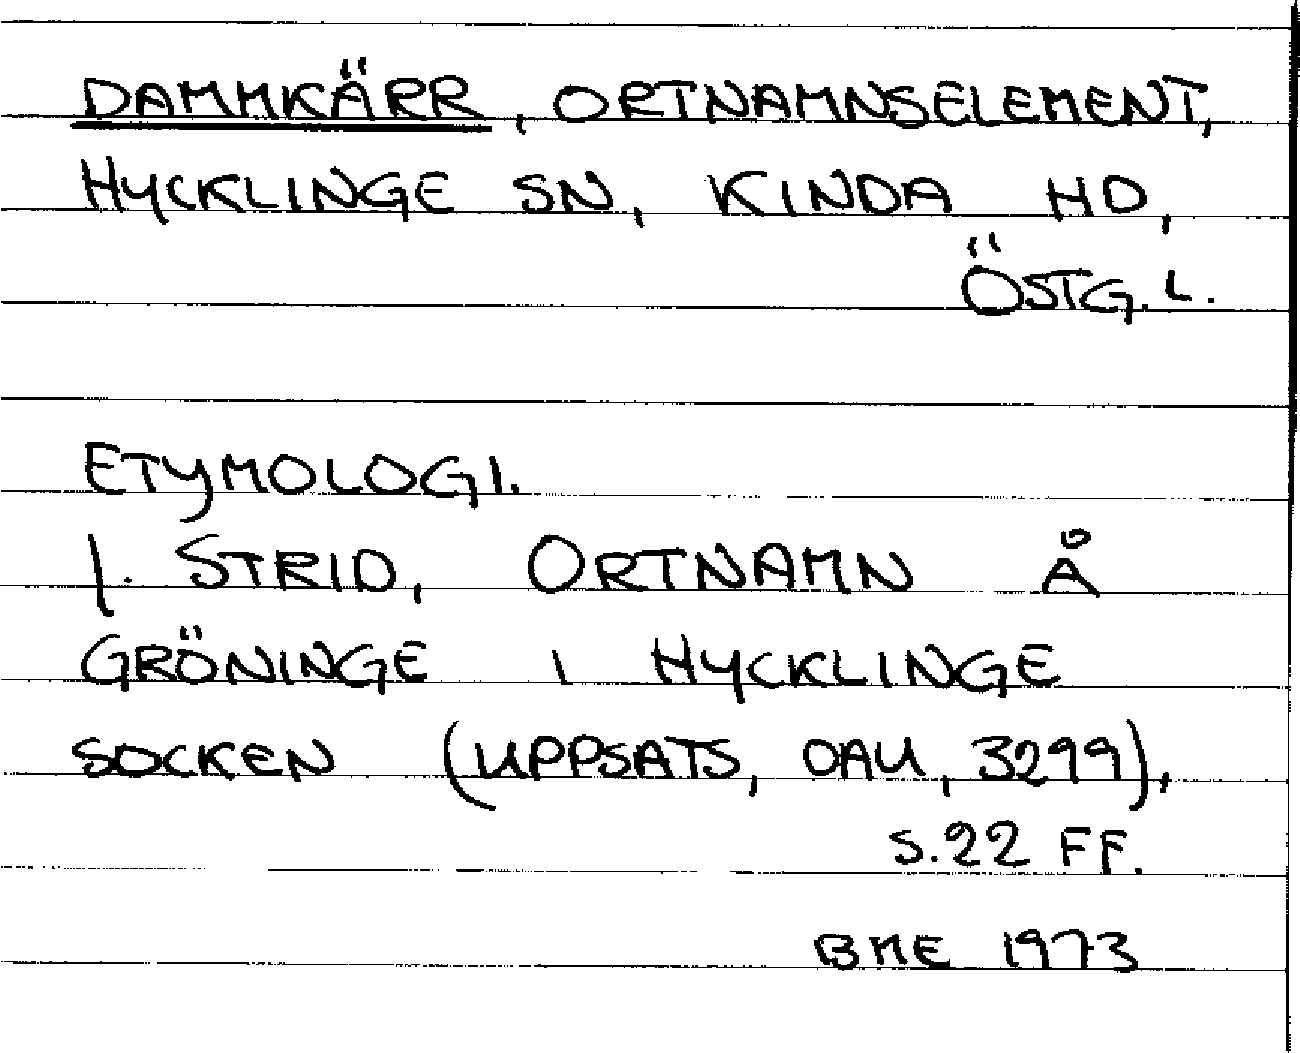 DAMMKÄRR, ORTNAMNSELEMENT,
HYCKLINGE SN, KINDA HD,
ÖSTG. L.
ETYMOLOGI.
J. STRID, ORTNAMN Å
GRÖNINGE I HYCKLINGE
SOCKEN (UPPSATS, OAU, 3299),
S. 22 FF.
BME 1973